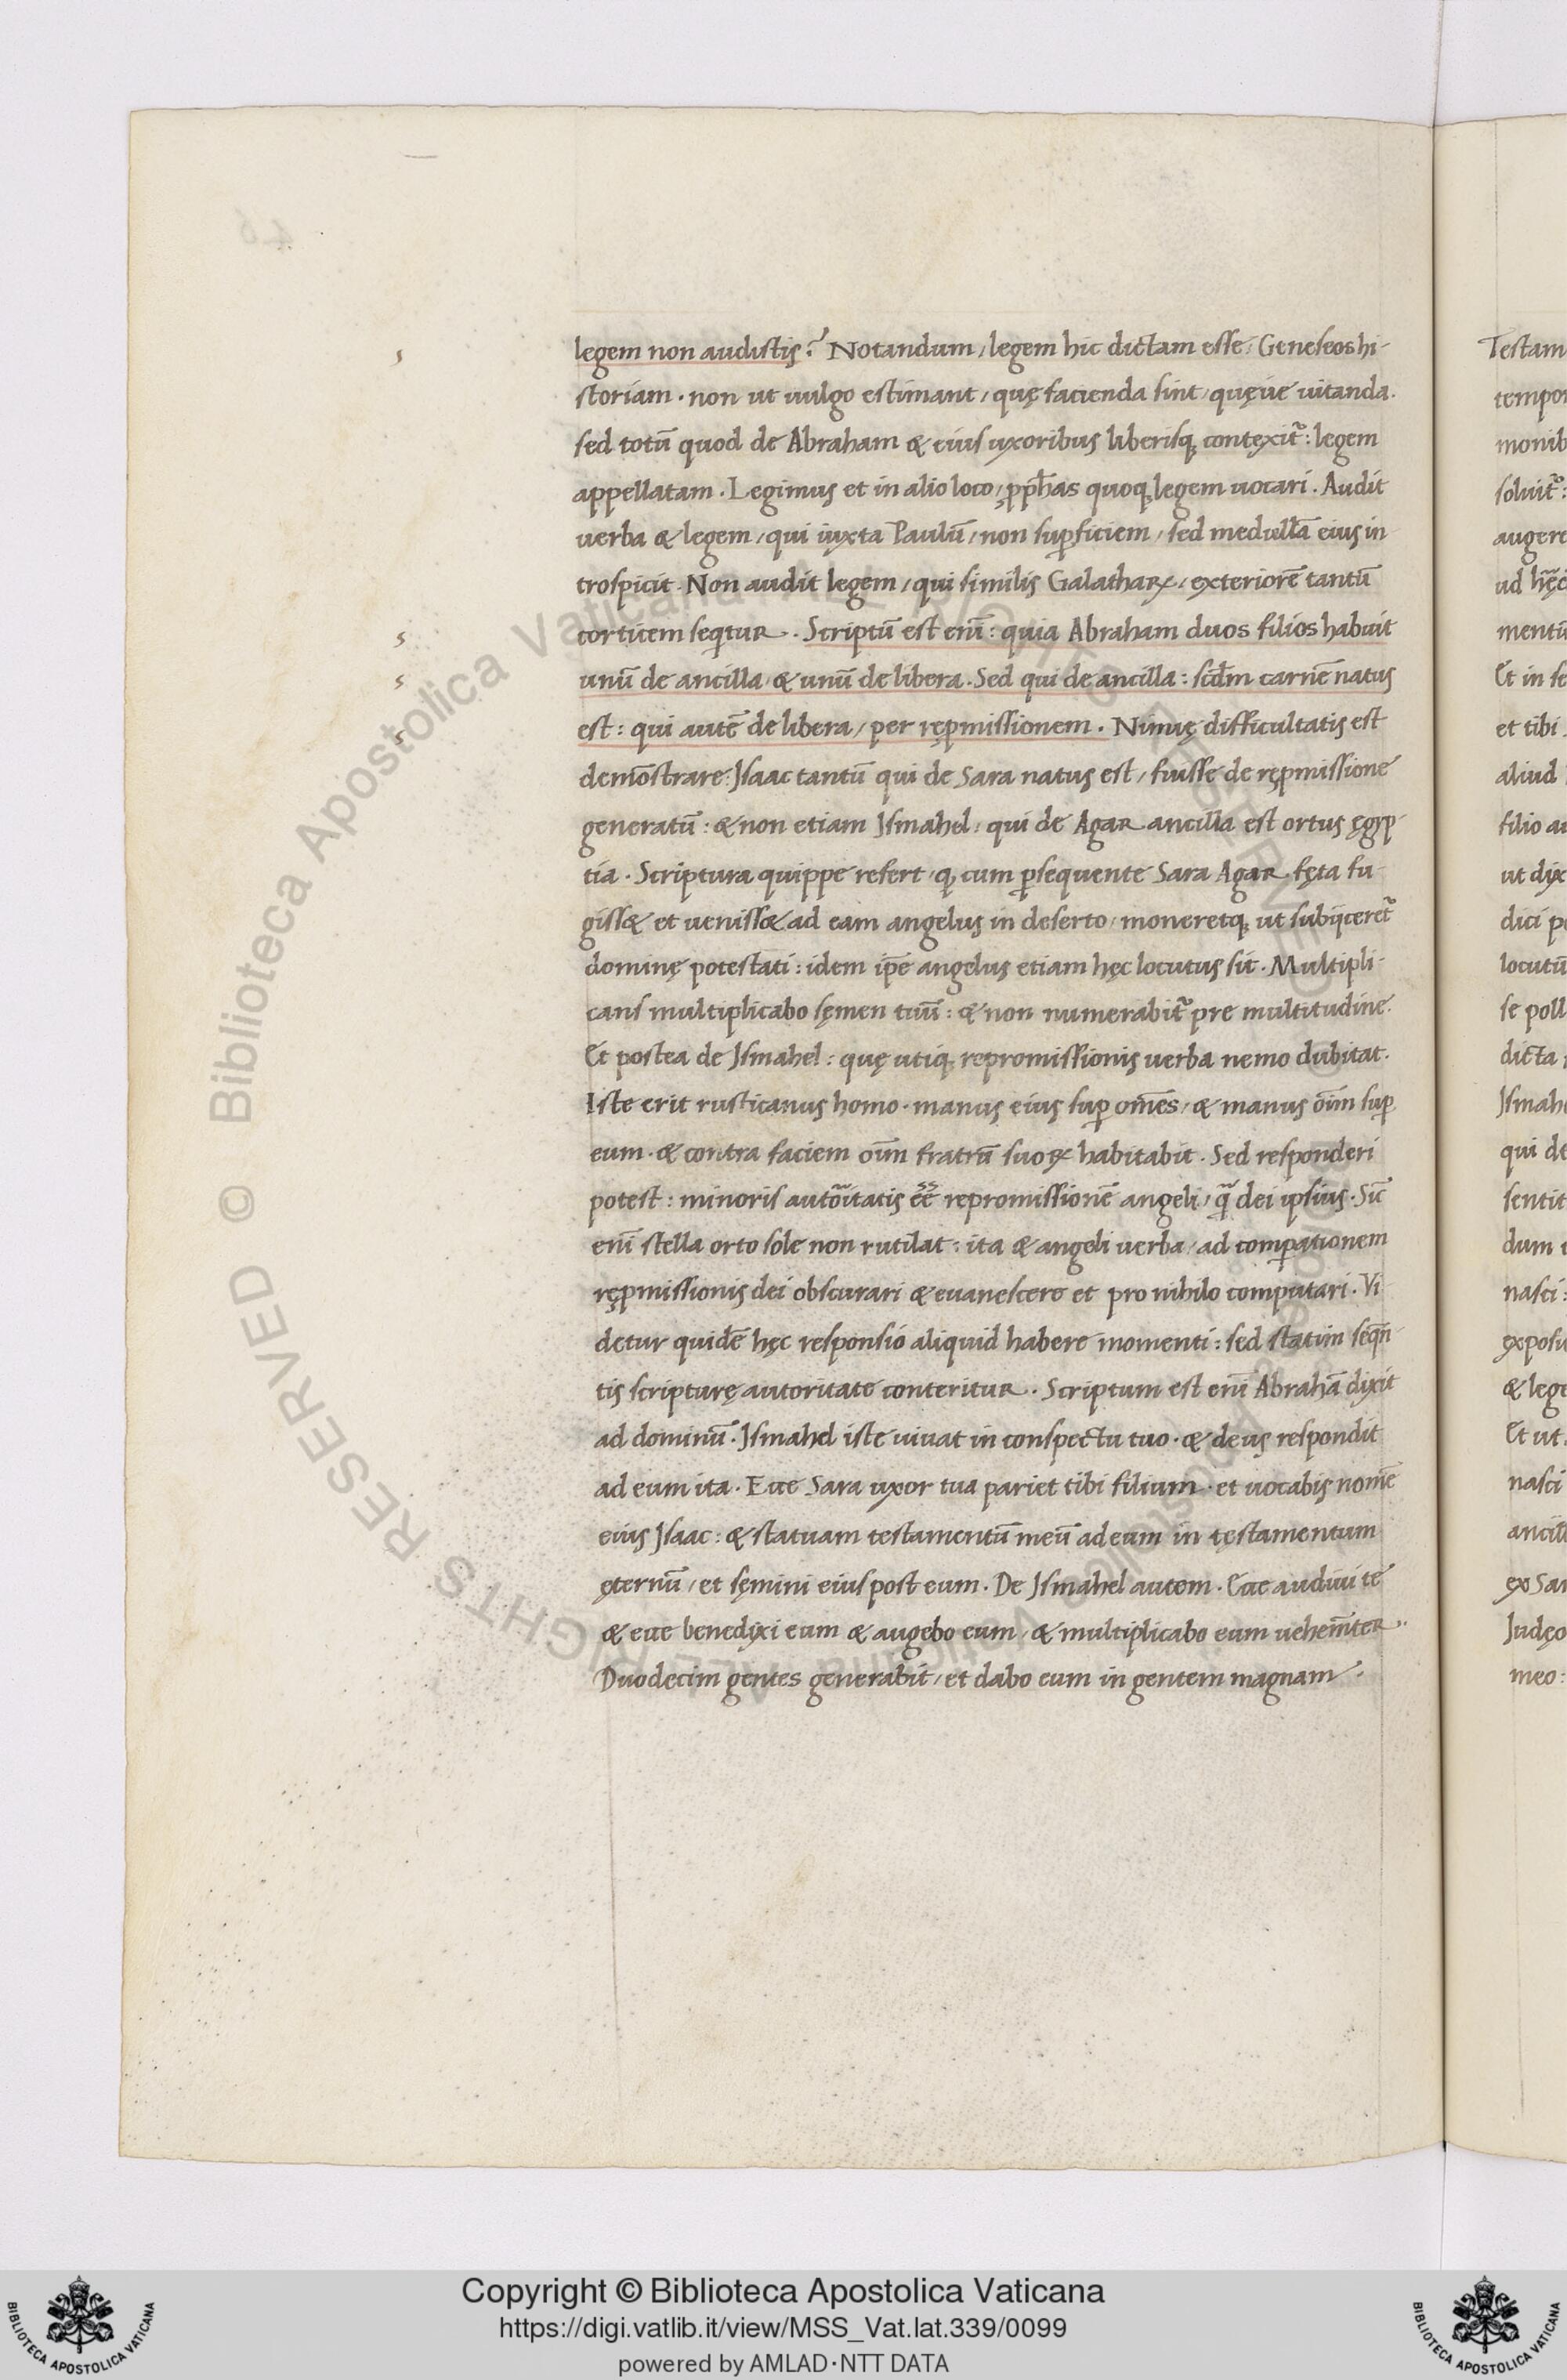 legem non audistis? Notandum, legem hic dictam esse, Geneseos hi-
storiam. non ut vulgo estimant, quę facienda sint, quęue uitanda.
sed totū quod de Abraham & eius uxoribus liberisq; contexit᷑: legem
appellatam. Legimus et in alio loco, ꝓph̄as quoq; legem uocari. Audit
uerba & legem, qui iuxta Paulū, non suꝑficiem, sed medullā eius in
trospicit. Non audit legem, qui similis Galatharꝝ, exteriorē tantū
corticem seqͥtur. Scriptū est enī: quia Abraham duos filios habuit
unū de ancilla, & unū de libera. Sed qui de ancilla: scd̄m carnē natus
est: qui autē de libera, per ręꝓmissionem. Nimię difficultatis est
demōstrare: Isaac tantū qui de Sara natus est, fuisse de ręꝓmissione
generatū: & non etiam Ismahel, qui de Agar ancilla est ortus ęgyp-
tia. Scriptura quippe refert, q; cum ꝑsequente Sara Agar fęta fu-
giss& et ueniss& ad eam angelus in deserto, moneretq; ut subijceret᷑
dominę potestati: idem ip̄e angelus etiam hęc locutus sit. Multipli-
cans multiplicabo sęmen tuū: & non numerabit᷑ pre multitudine.
Et postea de Ismahel: quę utiq; repromissionis uerba nemo dubitat.
Iste erit rusticanus homo. manus eius suꝑ om̄es, & manus oīm suꝑ
eum. & contra faciem oīm fratrū suoꝝ habitabit. Sed responderi
potest: minoris autōritatis eē̄ repromissionē angeli, qͣ̄ dei ipsius. Sic̄
enī stella orto sole non rutilat: ita & angeli uerba, ad comꝑationem
ręꝓmissionis dei obscurari & euanescere et pro nihilo computari. Vi
detur quidē hęc responsio aliquid habere momenti: sed statim seqn̄-
tis scripturę autoritate conteritur. Scriptum est enī Abrahā dixit
ad dominū. Ismahel iste uiuat in conspectu tuo. & deus respondit
ad eum ita. Ecce Sara uxor tua pariet tibi filium. et uocabis nomē
eius Isaac: & statuam testamentū meū ad eum in tęstamentum
ęternū, et sęmini eius post eum. De Ismahel autem. Ecce audiui te
& ecce benedixi eum & augebo eum, & multiplicabo eum uehem̄ter.
Duodecim gentes generabit, et dabo eum in gentem magnam.
Testam
tempor
monib
soluit᷑:
augere
ad hęc
mentū
Et in se
et tibi
aliud
filio au
ut dix
dici po
locutū
se poll
dicta
Ismahe
qui de
sentit
dum
nasci:
exposi
& lege
Et ut
nasci
ancill
ex Sar
Judęo
meo:
© Biblioteca Apostolica Vaticana ALL RIGHTS RESERVED
Copyright © Biblioteca Apostolica Vaticana
https://digi.vatlib.it/view/MSS_Vat.lat.339/0099
powered by AMLAD·NTT DATA
BIBLIOTECA APOSTOLICA VATICANA
BIBLIOTECA APOSTOLICA VATICANA